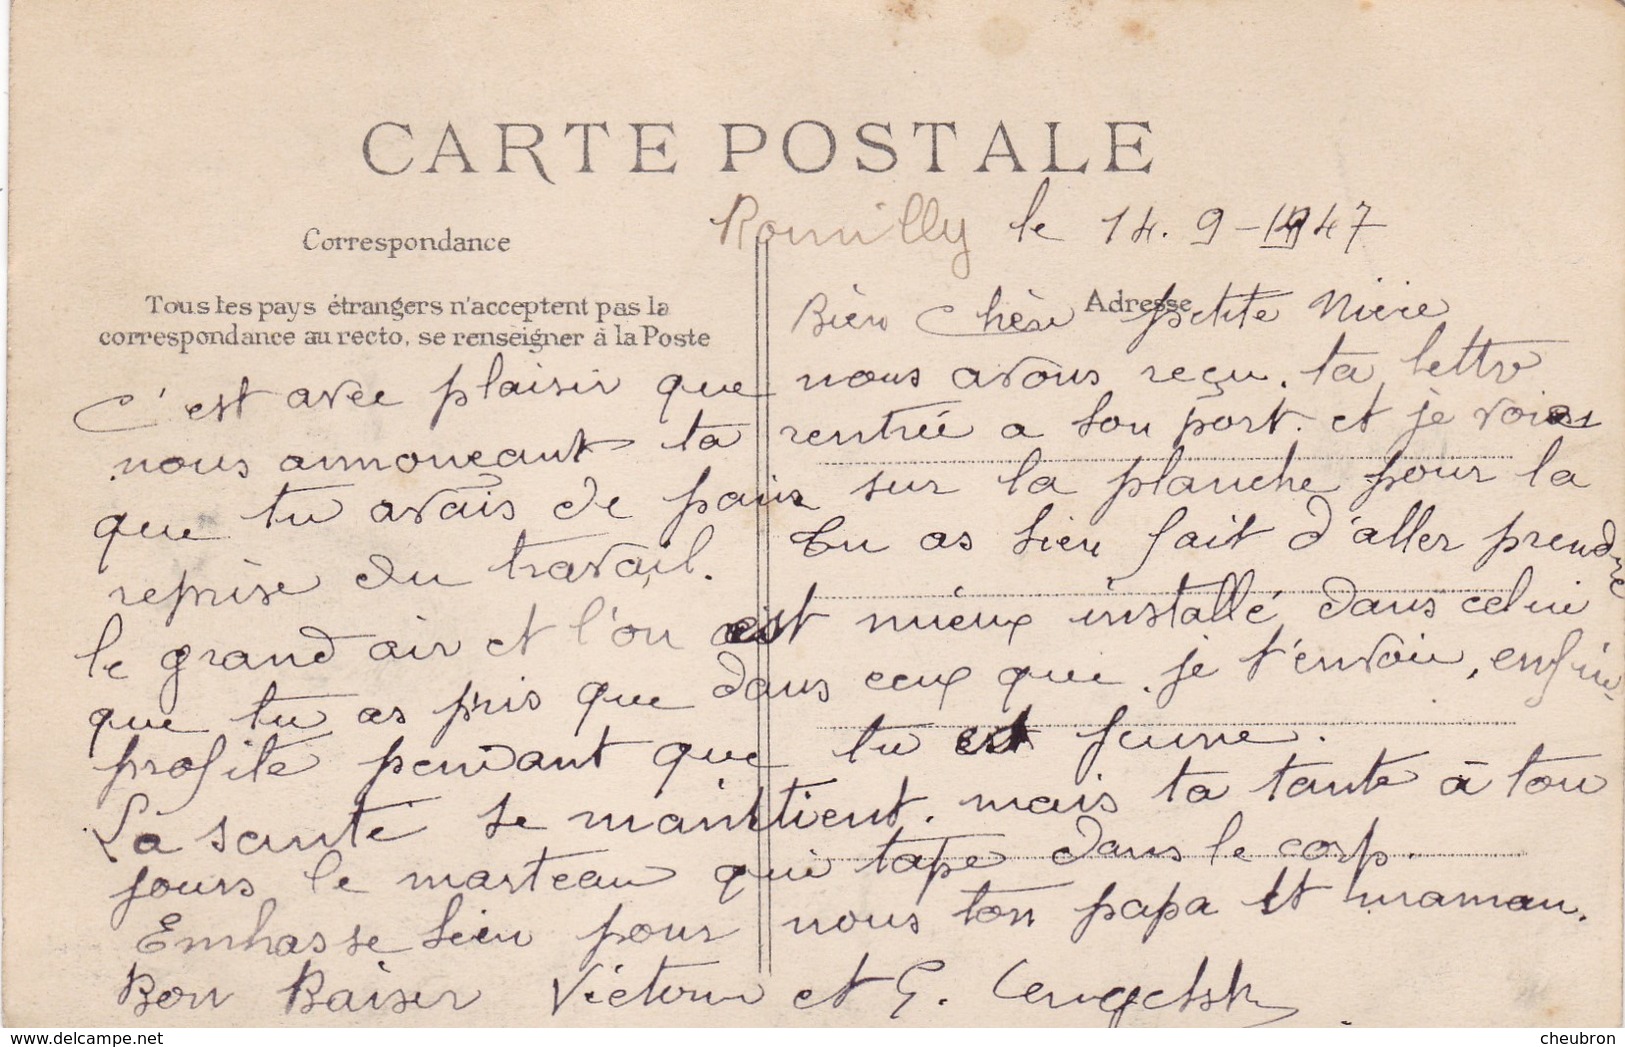 CARTE POSTALE
Romilly le 14. 9-1947
Correspondance
Adresse
Tous les pays étrangers n'acceptent pas la
correspondance au recto, se renseigner à la Poste
Bien Chère petite Niece
C'est avec plaisir que nous avons reçu ta lettre
nous annonçant ta rentrée a bon port. et je vois
que tu avais de pain sur la planche pour la
reprise du travail. Tu as bien fait d'aller prendre
le grand air et l'on est mieux installé dans celui
que tu as pris que dans ceux que je t'envoie, enfin
profite pendant que tu est jeune.
La santé se maintient. mais ta tante à tou
jours le marteau qui tape dans le corp.
Embasse bien pour nous ton papa et maman.
Bon Baiser Victour et G.
www.delcampe.net
cheubron